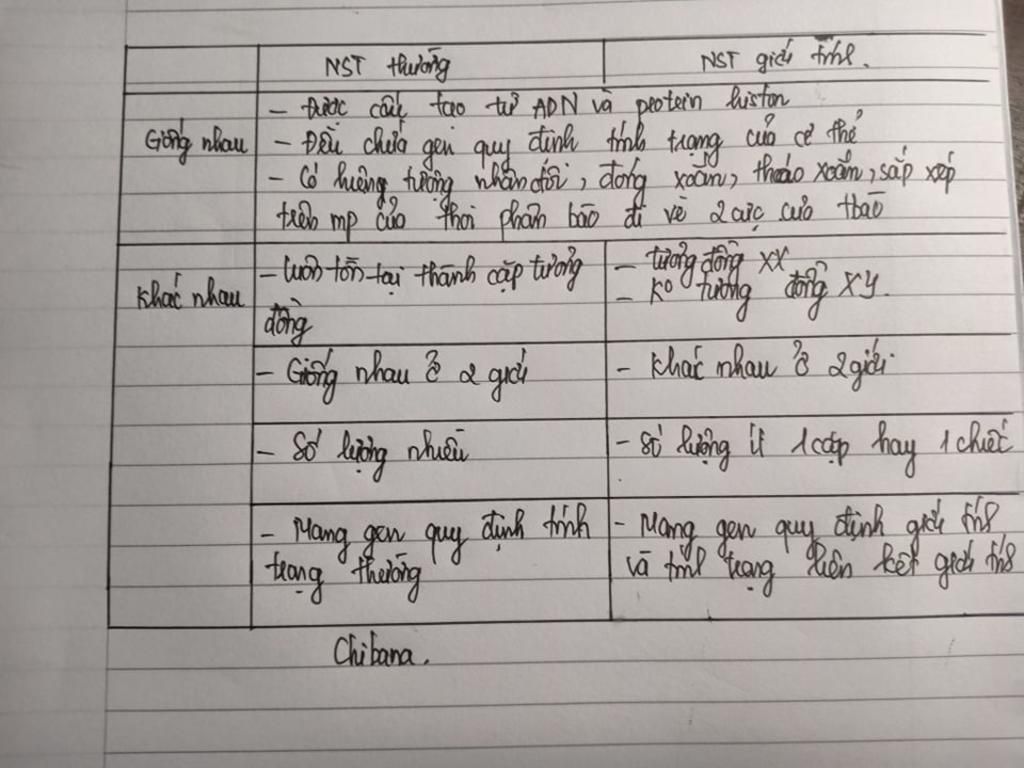 NST thường
NST giới tính.
Giống nhau
- Được cấu tạo từ ADN và protein histon
- Đều chứa gen quy định tính trạng của cơ thể
- Có hiện tượng nhân đôi, đóng xoắn, tháo xoắn, sắp xếp
trên mp của thoi phân bào đi về 2 cực của tbào
Khác nhau
- luôn tồn tại thành cặp tương
đồng
- tương đồng XX
- Ko tương đồng XY.
- Giống nhau ở 2 giới
- Khác nhau ở 2 giới.
- Số lượng nhiều
- Số lượng ít 1 cặp hay 1 chiếc
- Mang gen quy định tính
trạng thường
- Mang gen quy định giới tính
và tính trạng liên kết giới tính
Chibana.